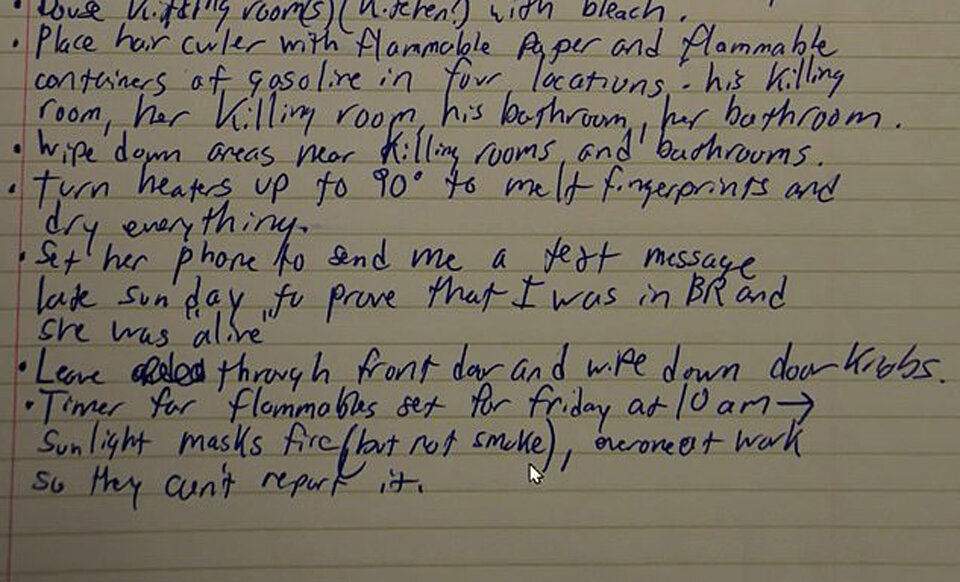 • Douse killing room(s) (kitchen?) with bleach.
• Place hair curler with flammable paper and flammable
containers of gasoline in four locations - his killing
room, her killing room, his bathroom, her bathroom.
• Wipe down areas near killing rooms and bathrooms.
• Turn heaters up to 90° to melt fingerprints and
dry everything.
• Set her phone to send me a text message
late Sunday to prove that I was in BR and
she was "alive"
• Leave through front door and wipe down door knobs.
• Timer for flammables set for friday at 10 am →
sunlight masks fire (but not smoke), at work
so they can't report it.